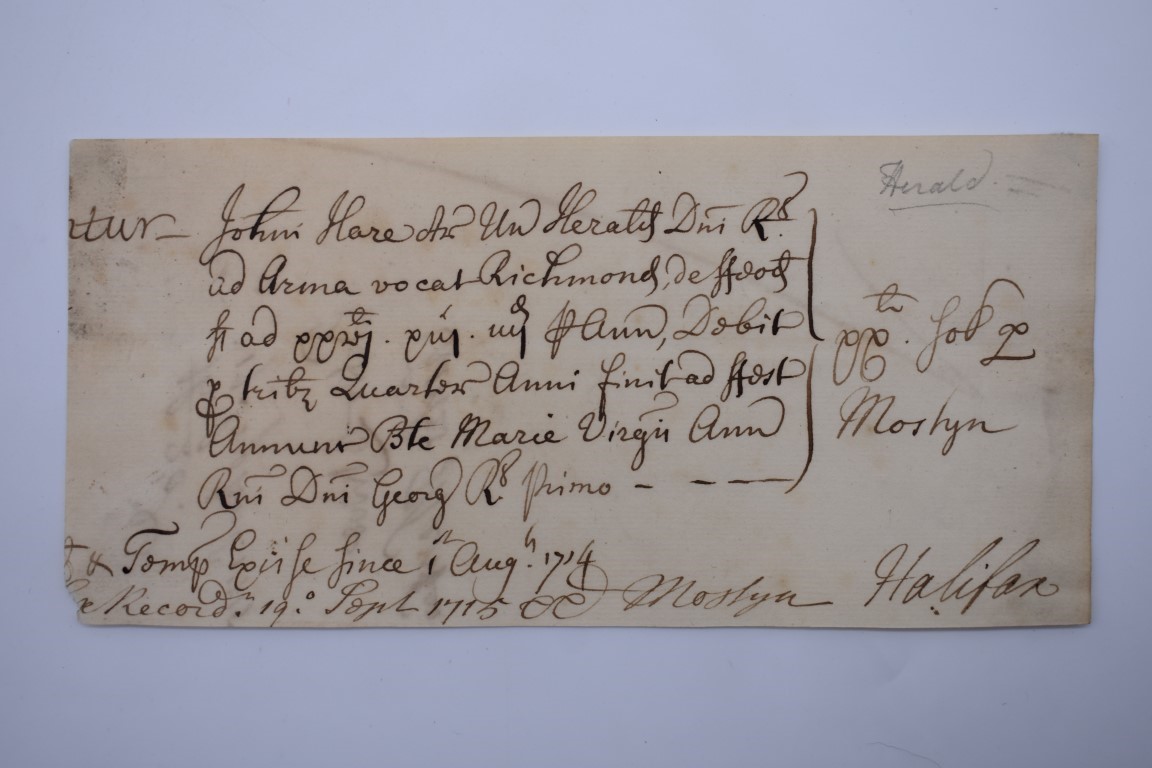 Herald
ntur John Hare Ar Un Herald Dni Rs
ad Arma vocat Richmond, de ffeod
st ad Ann, Debit
p tribz Quarter Anni finit ad ffest
Annunt Bte Marie Virgii Ann
Rni Dni Georg Rs Primo - - ——
xx li. Sol p
Mostyn
& Temp Excise since 1st Augt. 1714
Record. 19.o Sept 1715 Mostyn Halifax